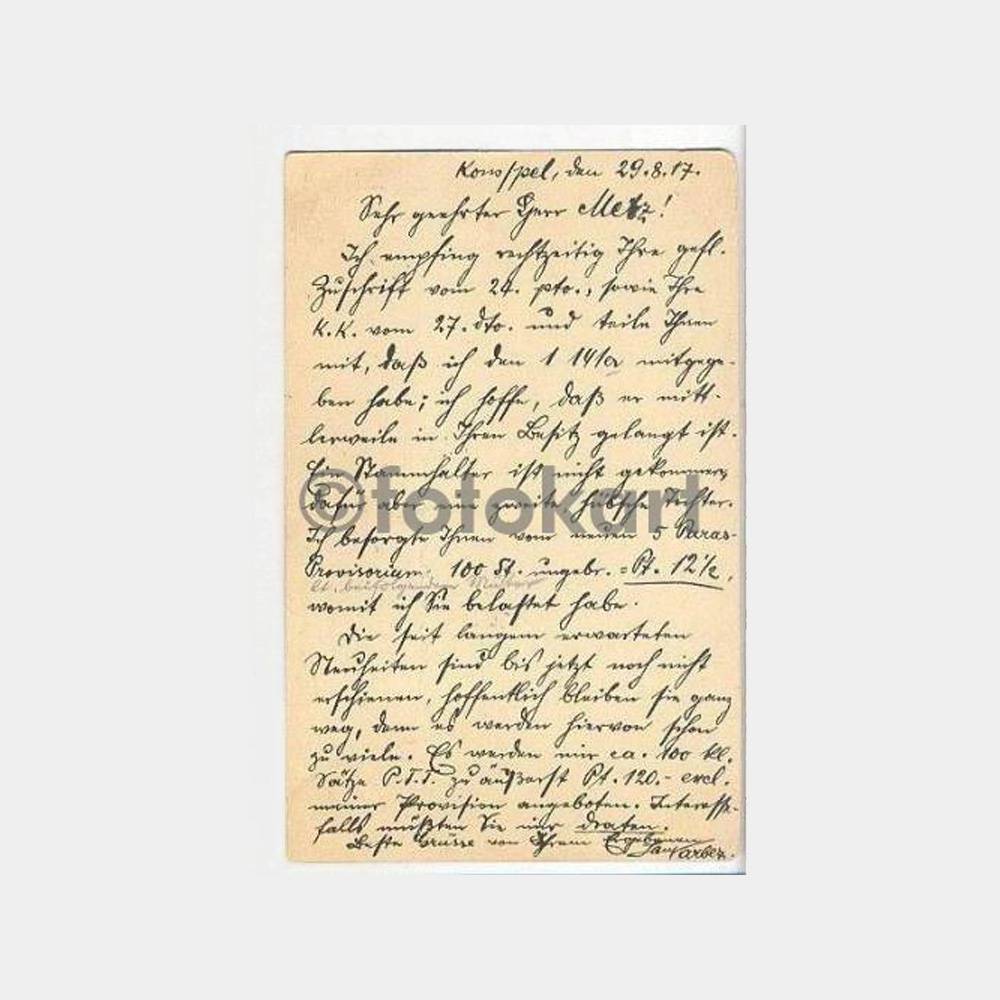 Konspel, den 29.8.17.
Sehr geehrter Herr Metz!
Ich empfing rechtzeitig Ihre gefl.
Zuschrift vom 24. pto., sowie Ihre
K.K. vom 27. dto. und teile Ihnen
mit, daß ich den 1 14/er mitgege-
ben habe; ich hoffe, daß er mitt-
lerweile in Ihren Besitz gelangt ist.
Ein Stammhalter ist nicht gekommen,
dafür aber eine zweite hübsche Tochter.
©fotokart
Ich besorgte Ihnen vom neuen 5 Paras-
Provisorium 100 St. ungebr. = Pt. 12½,
lt. beifolgendem Muster
womit ich Sie belastet habe.
Die seit langem erwarteten
Neuheiten sind bis jetzt noch nicht
erschienen, hoffentlich bleiben sie ganz
weg, denn es werden hiervon schon
zu viele. Es werden mir ca. 100 kl.
Sätze P.T.T. zu äußerst Pt. 120.- excl.
meiner Provision angeboten. Interesse-
falls müßten Sie mir draten.
Beste Grüsse von Ihrem Ergebenen